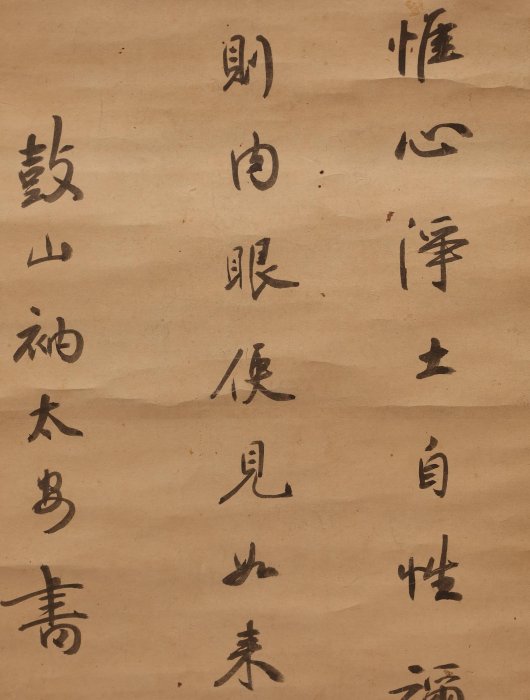 惟心淨土自性彌
則肉眼便見如来
鼓山衲太安書